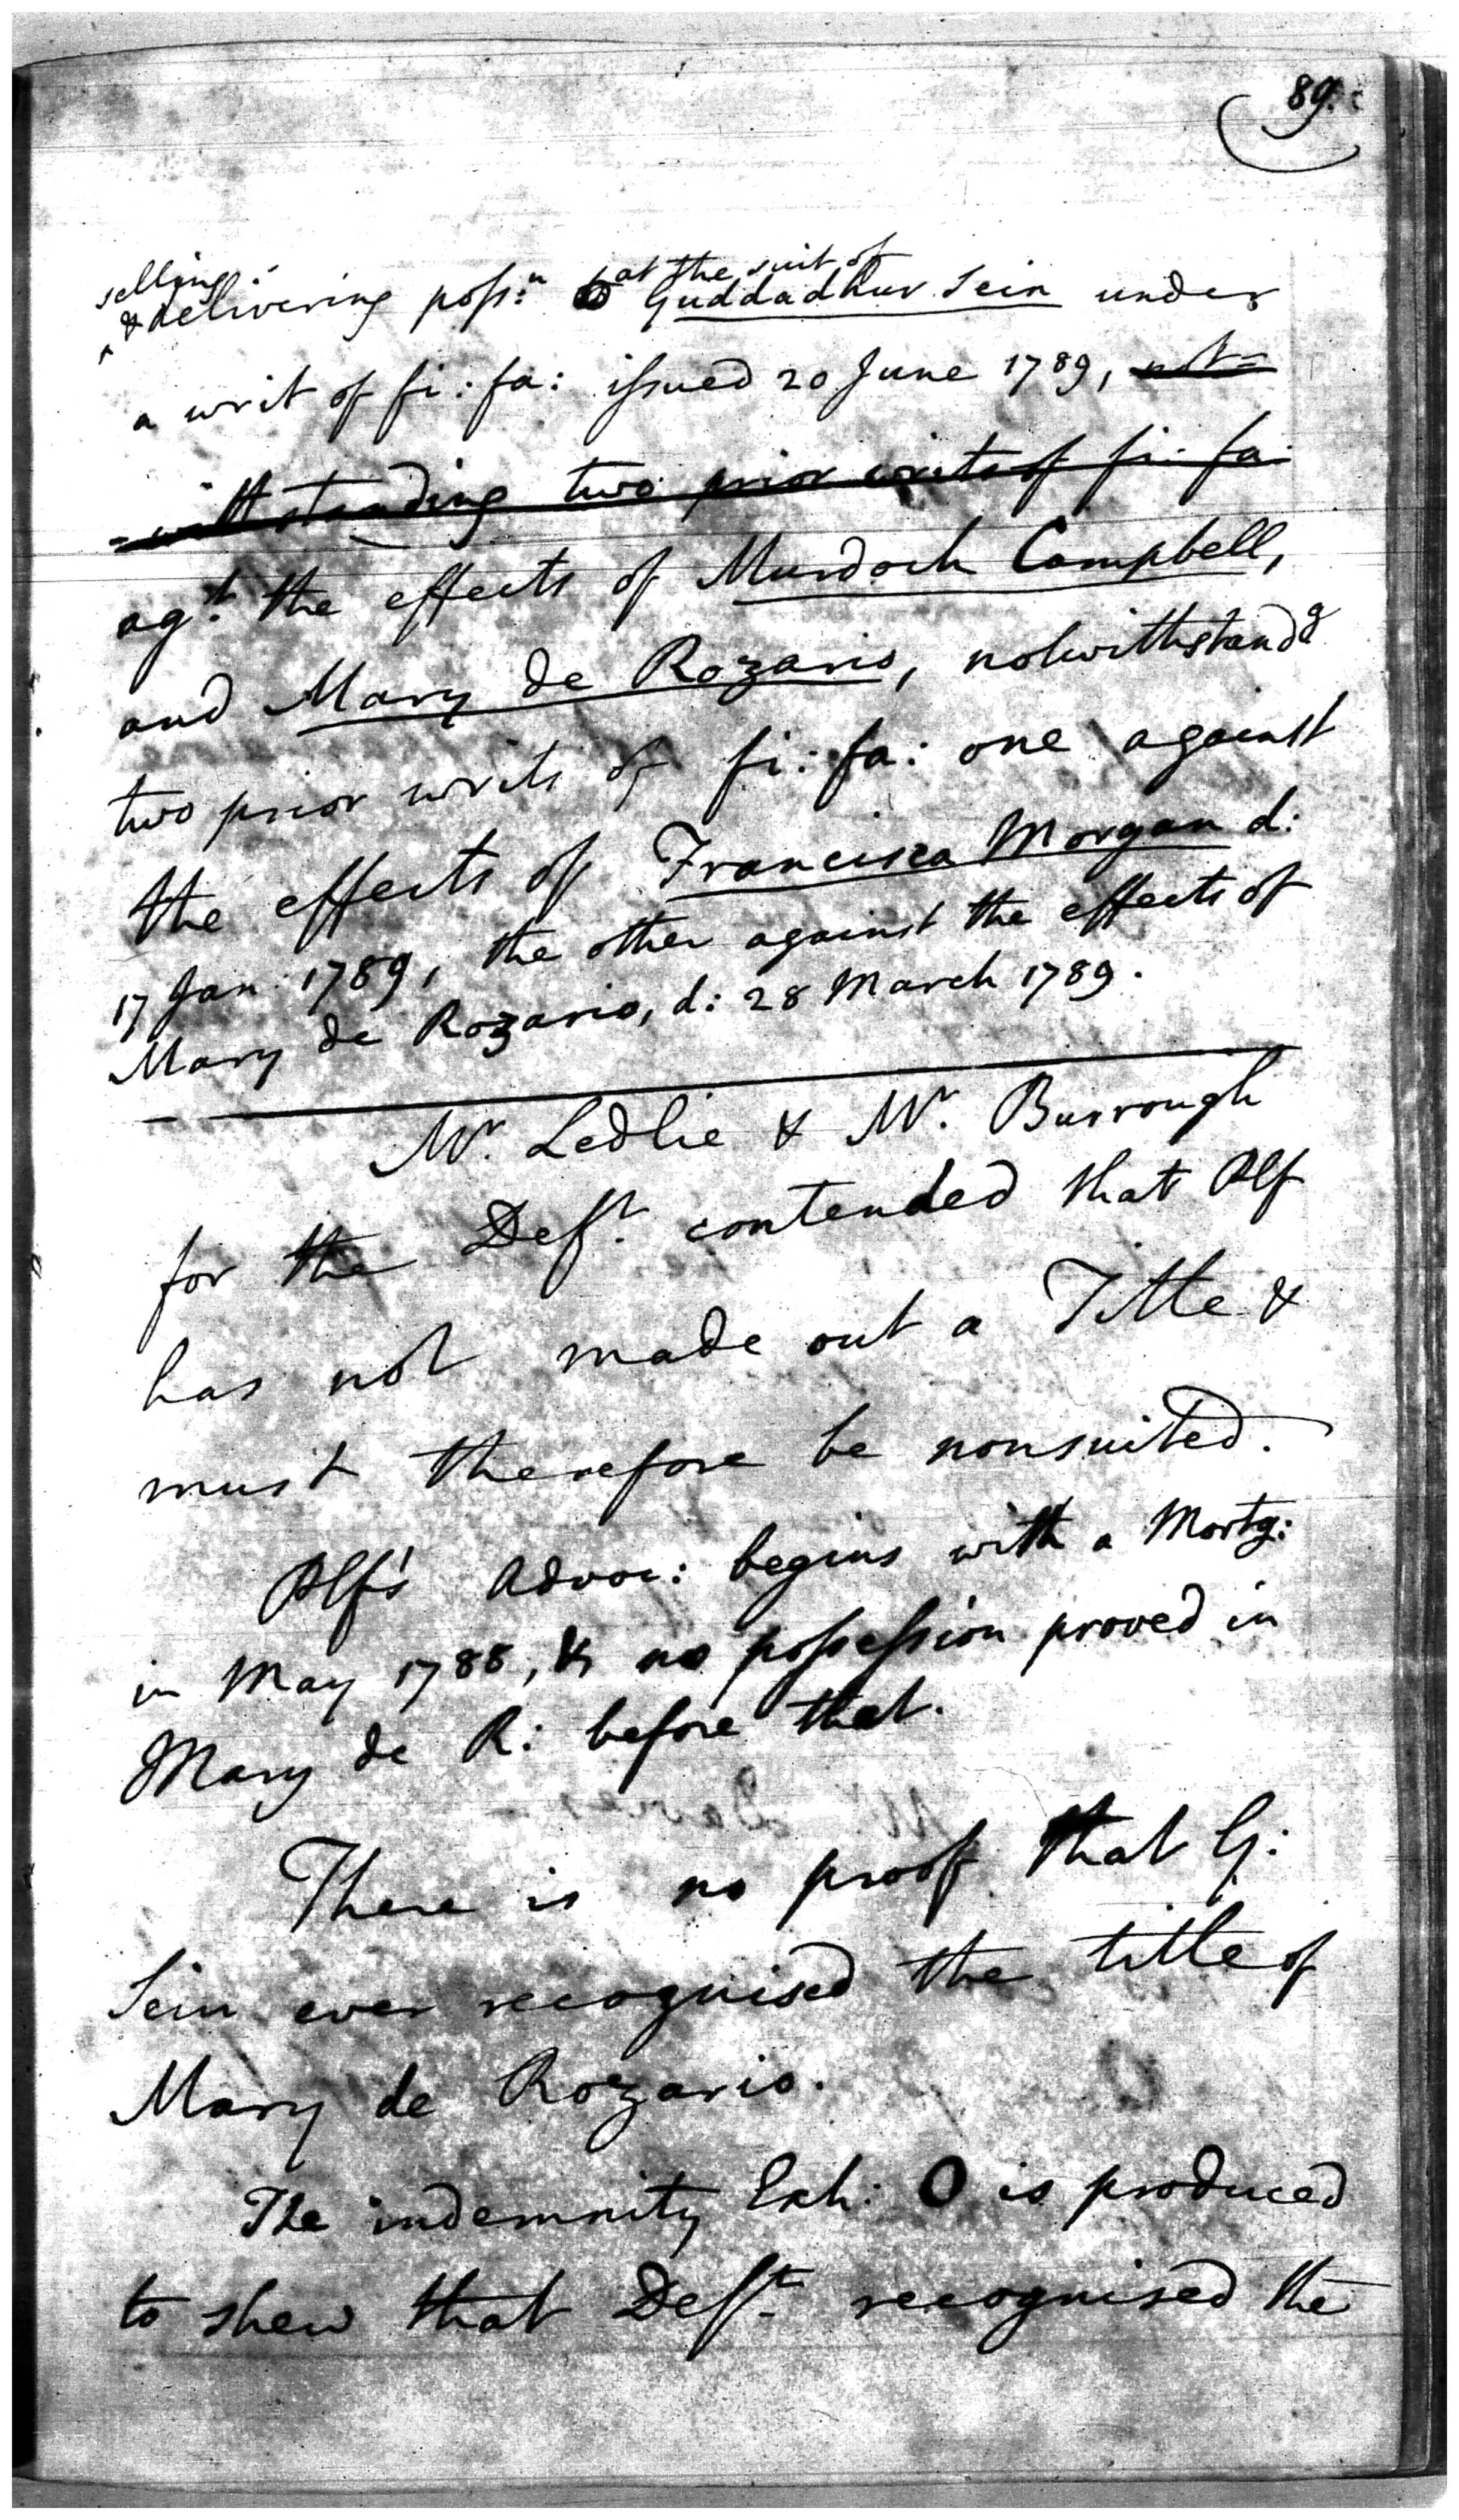 89.
selling at the suit of
& delivering poss:n Guddadhur Sein under
a writ of fi: fa: issued 20 June 1789, not=
=withstanding two prior writs of fi: fa:
ag.t the effects of Murdoch Campbell,
and Mary de Rozario, notwithstandg
two prior writs of fi: fa: one against
the effects of Francisca Morgan d:
17 Jan: 1789, the other against the effects of
Mary de Rozario, d: 28 March 1789.
Mr. Ledlie & Mr. Burrough
for the Deft. contended that Plf
has not made out a Title &
must therefore be nonsuited.
Plf's Advoc: begins with a Mortg:
in May 1788, & no possession proved in
Mary de R: before that.
There is no proof that G:
Sein ever recognised the title of
Mary de Rozario.
The indemnity Exh: O is produced
to shew that Deft. recognised the